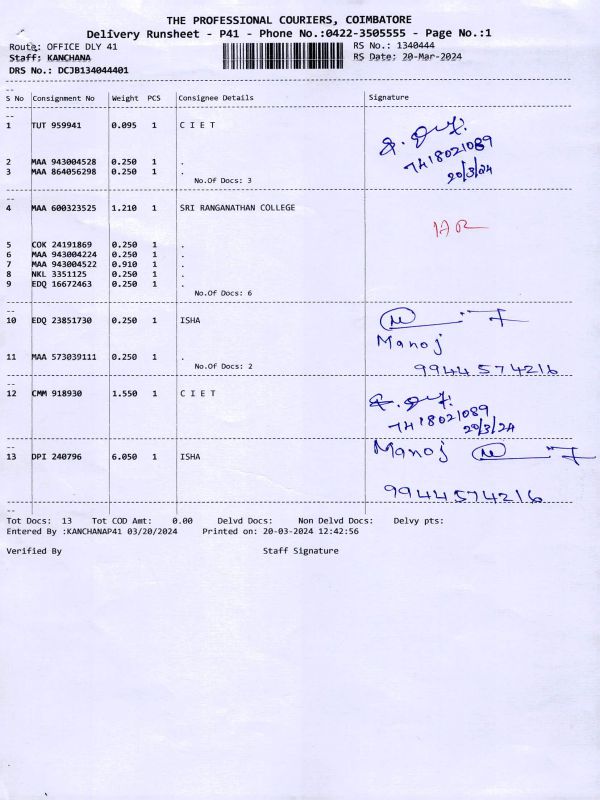 THE PROFESSIONAL COURIERS, COIMBATORE
Delivery Runsheet - P41 - Phone No.:0422-3505555 - Page No.:1
Route: OFFICE DLY 41
RS No.: 1340444
Staff: KANCHANA
RS Date: 20-Mar-2024
DRS No.: DCJB134044401
S No Consignment No Weight PCS Consignee Details Signature
1 TUT 959941 0.095 1 C I E T
7418021089
20/3/24
2 MAA 943004528 0.250 1 .
3 MAA 864056298 0.250 1 .
No.Of Docs: 3
4 MAA 600323525 1.210 1 SRI RANGANATHAN COLLEGE
5 COK 24191869 0.250 1 .
6 MAA 943004224 0.250 1 .
7 MAA 943004522 0.910 1 .
8 NKL 3351125 0.250 1 .
9 EDQ 16672463 0.250 1 .
No.Of Docs: 6
10 EDQ 23851730 0.250 1 ISHA
Manoj
11 MAA 573039111 0.250 1 .
No.Of Docs: 2
9944574216
12 CMM 918930 1.550 1 C I E T
7418021089
20/3/24
Manoj
13 DPI 240796 6.050 1 ISHA
9944574216
Tot Docs: 13 Tot COD Amt: 0.00 Delvd Docs: Non Delvd Docs: Delvy pts:
Entered By :KANCHANAP41 03/20/2024 Printed on: 20-03-2024 12:42:56
Verified By Staff Signature